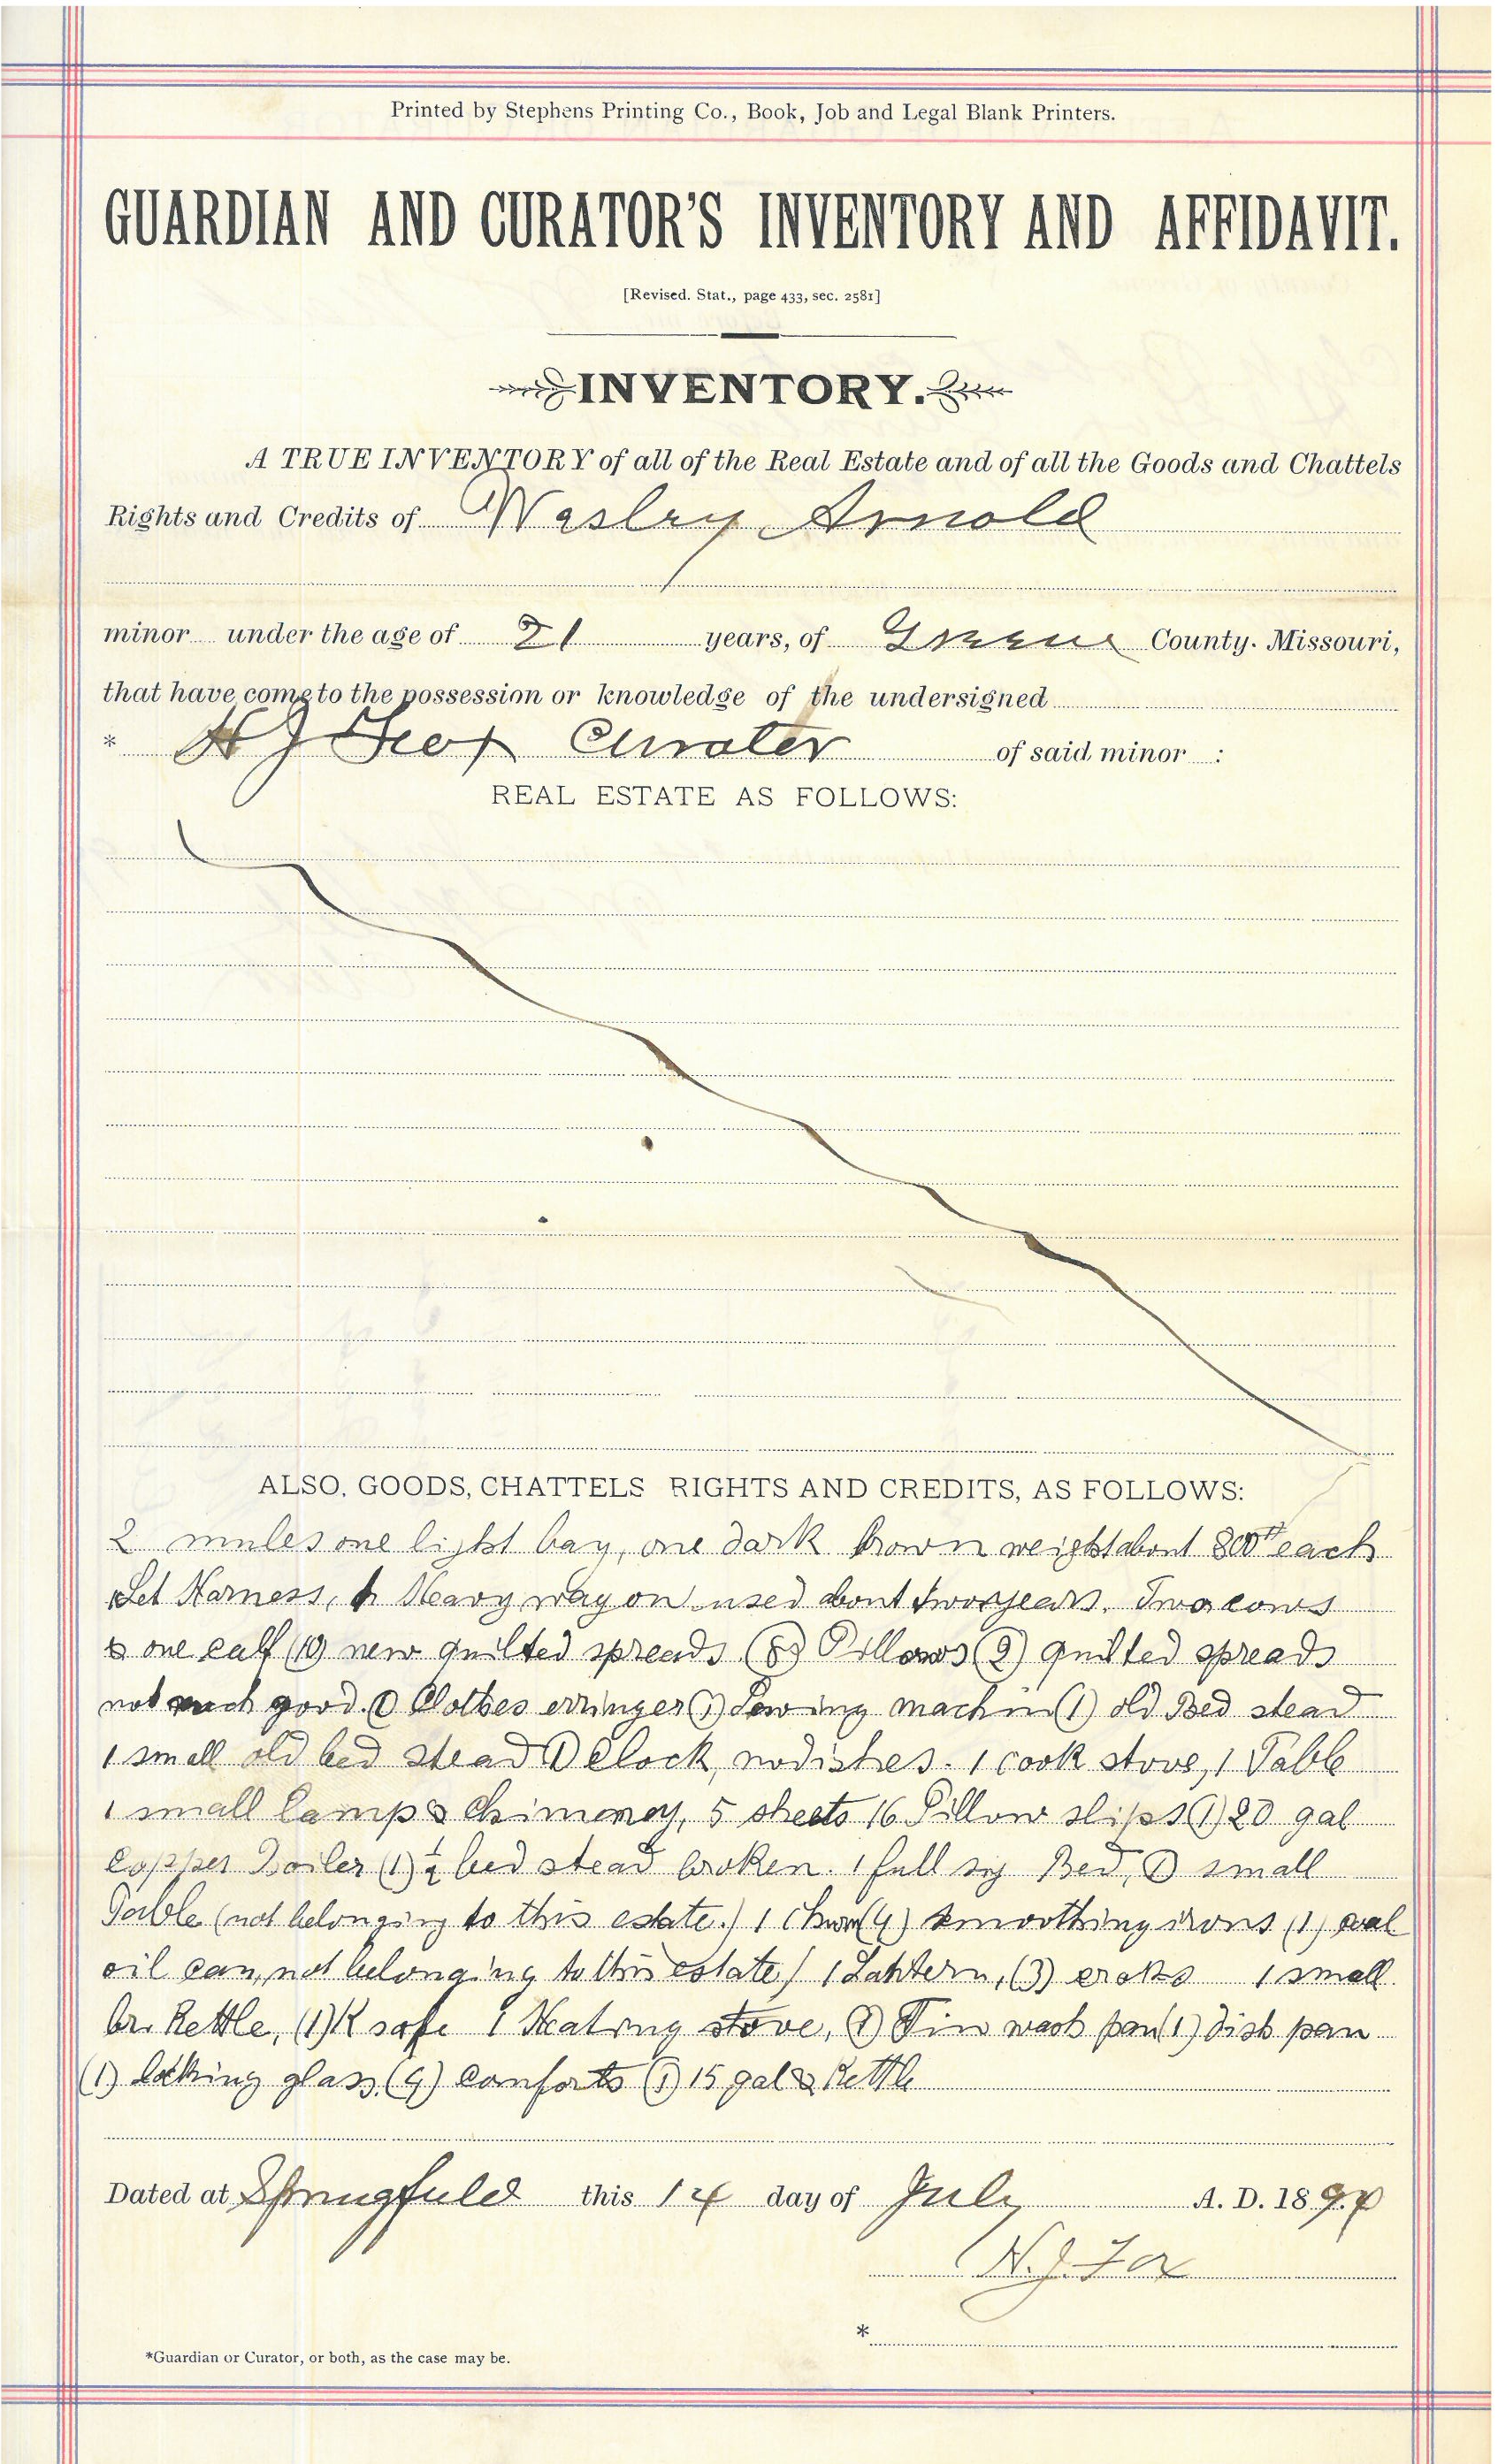 Printed by Stephens Printing Co., Book, Job and Legal Blank Printers.
GUARDIAN AND CURATOR'S INVENTORY AND AFFIDAVIT.
[Revised. Stat., page 433, sec. 2581]
INVENTORY.
A TRUE INVENTORY of all of the Real Estate and of all the Goods and Chattels
Rights and Credits of Wesley Arnold
minor under the age of 21 years, of Greene County. Missouri,
that have come to the possession or knowledge of the undersigned
* Curater of said minor :
REAL ESTATE AS FOLLOWS:
ALSO, GOODS, CHATTELS RIGHTS AND CREDITS, AS FOLLOWS:
2 mules one light bay, one dark brown weight about 800# each
1 Set Harness, 1 Heavy wagon used about two years. Two cows
& one calf (10) new quilted spreads (8) Pillows (2) quilted spreads
not much good. (1) Clothes erringer (1) Sewing machin (1) old Bed stead
1 small old bed stead (1) Clock, no dishes. 1 cook stove, 1 Table
1 small lamp & Chimeney, 5 sheets 16 Pillow slips (1) 20 gal
Copper Boiler (1) ½ bed stead broken. 1 full Bed, (1) small
Table (not belonging to this estate.) 1 Churn (4) smoothing irons (1) coal
oil can, not belonging to this estate) 1 Lantern, (3) croks 1 small
br. Kettle, (1) K safe 1 Heating stove, (1) Tin wash pan (1) dish pan
(1) looking glass, (4) comforts (1) 15 gal Kettle
Dated at Springfield this 14 day of July A. D. 189
N. J. Fox
*
*Guardian or Curator, or both, as the case may be.